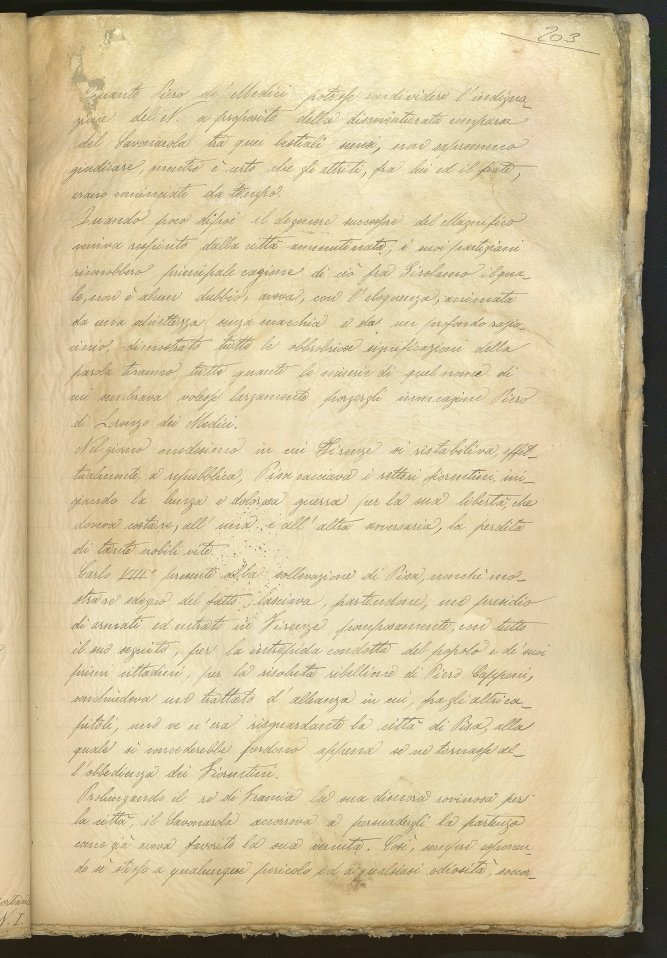 203
Quanto Piero de' Medici potesse condividere l'indigna-
zione del N. a proposito della disavventurata comparsa
del Savonarola tra quei bestiali, non sapremmo
giudicare, mentre è certo che gli attriti, fra lui ed il frate,
erano cominciati da tempo.
Quando, poco dipoi il degenere successore del Magnifico
veniva respinto dalla città ammutinata, i suoi partigiani
riconobbero principale cagione di ciò fra Girolamo il qua-
le, non è alcun dubbio, aveva, con l'eloquenza, animata
da una senza macchia e da un profondo razio
cinio, dimostrato tutte le obbrobriose significazioni della
parola tiranno, tutte quante le miserie di quel nome di
cui sembrava volesse largamente porgergli immagine Piero
di Lorenzo dei Medici.
Nel giorno medesimo in cui Firenze si ristabiliva, effet-
tualmente, a repubblica, Pisa cacciava i rettori fiorentini, ini-
ziando la lunga e dolorosa guerra per la sua libertà, che
doveva costare, all'una e all'altra avversaria, la perdita
di tante nobili vite.
Carlo VIII° presente alla sollevazione di Pisa, nonchè mo-
strare sdegno del fatto, lasciava, partendone, un presidio
di armati ed entrato in Firenze pomposamente, con tutto
il suo seguito, per la intrepida condotta del popolo e de' suoi
primi cittadini, per la risoluta ribellione di Piero Capponi,
conchiudeva uno trattato d'alleanza in cui, fra gli altri ca-
pitoli, uno ve n'era risguardante la città di Pisa, alla
quale si concederebbe perdono appena se ne tornasse al-
l'obbedienza dei Fiorentini.
Prolungando il re di Francia la sua dimora rovinosa per
la città, il Savonarola accorreva a persuadergli la partenza
come già aveva favorito la sua venuta. Così, sempre esponen-
do sè stesso a qualunque pericolo ed a qualsiasi odiosità, soccor-
N. I.